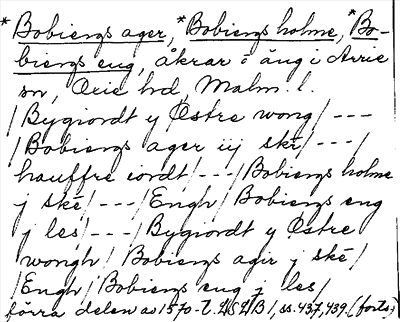 *Bobiengs ager, *Bobiengs holme, *Bo-
biengs eng, åkrar o äng i Arrie
sn, Oxie hd, Malm. l.
/ Bygiordt y Østre wong / ---
/ Bobiengs ager iij skē / --- /
hauffre iordt / --- / Bobiengs holme
j skē / --- / Engh / Bobiengs eng
j les / --- / Bygiordt y Østre
wongh / Bobiengs agir j skē /
/ Engh / Bobiengs eng j les /
förra delen av 1570-t. ss. 437, 439. (forts.)